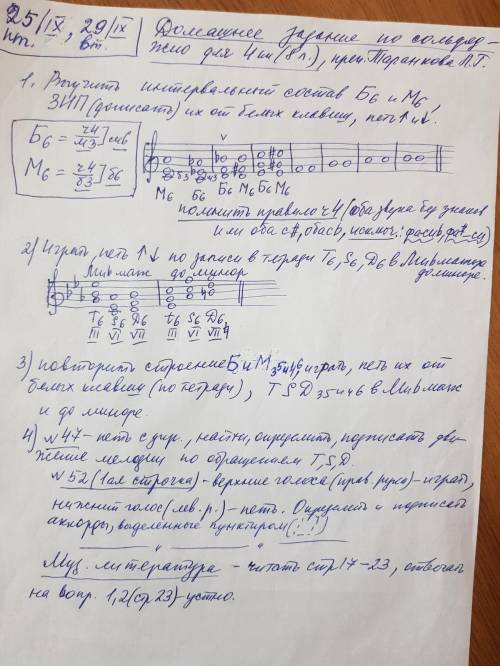 25/IX, 29/IX
пт. вт.
Домашнее задание по сольфед-
жио для 4 кл (8 л.), преп. Таранкова Л.Г.
1. Выучить интервальный состав Б6 и М6,
ЗИП (дописать) их от белых клавиш, петь ↑ и ↓.
Б6 = ч4/м3 ] м6
М6 = ч4/б3 ] б6
V
б3 ч3
М6 Б6 Б6 М6 Б6 М6
помнить правило ч4 (оба звука без знаков
или оба с #, оба с b, исключ.: фа-сиb, фа#-си)
2) Играть, петь ↑↓ по записи в тетради T6, S6, D6 в Ми b мажоре
до миноре.
Ми b маж до минор
T6 S6 D6 t6 S6 D6
III VI VII III VI VII#
3) повторить строение Б и М 35 и 46, играть, петь их от
белых клавиш (по тетради), TSD 35 и 46 в Ми b маж
и до миноре.
4) №47 - петь с дир., найти, определить, подписать дви-
жение мелодии по обращениям T, S, D.
№52 (1ая строчка) - верхние голоса (прав. рука) - играть,
нижний голос (лев. р.) - петь. Определить и подписать
аккорды, выделенные пунктиром
Муз. литература - читать стр 17-23, отвечать
на вопр. 1,2 (стр 23) - устно.